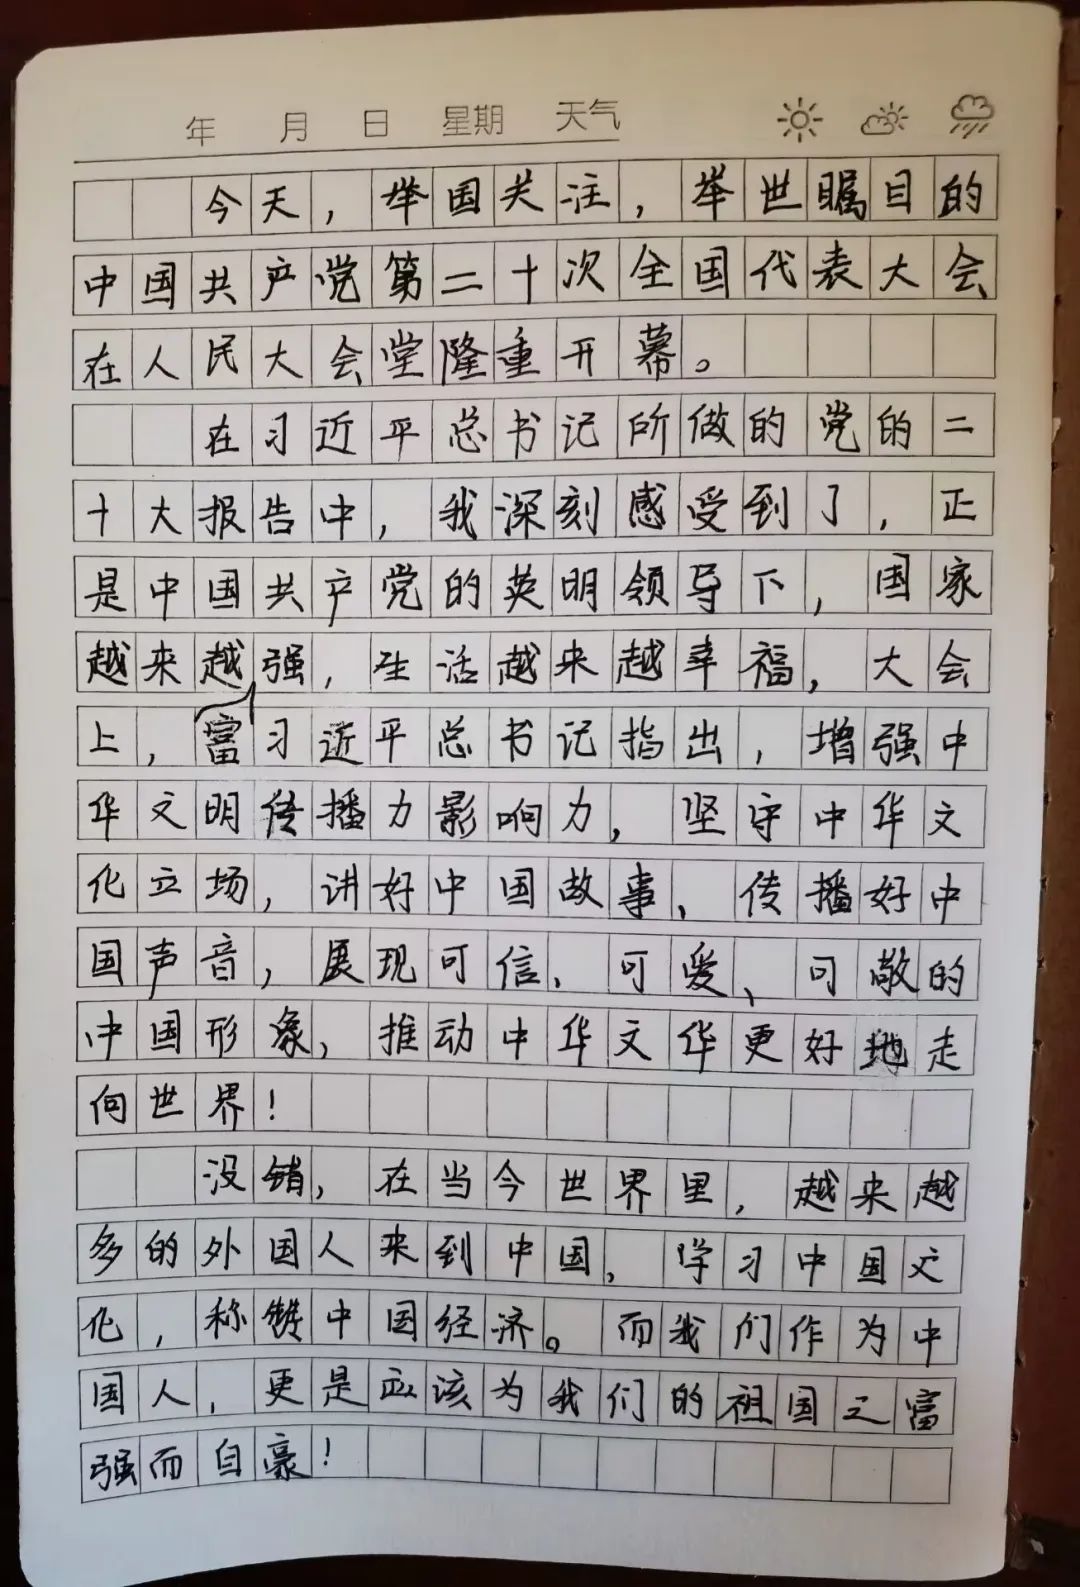 年 月 日 星期 天气
今天，举国关注，举世瞩目的
中国共产党第二十次全国代表大会
在人民大会堂隆重开幕。
在习近平总书记所做的党的二
十大报告中，我深刻感受到了，正
是中国共产党的英明领导下，国家
越来越强，生活越来越幸福，大会
上，富习近平总书记指出，增强中
华文明传播力影响力，坚守中华文
化立场，讲好中国故事、传播好中
国声音，展现可信、可爱、可敬的
中国形象，推动中华文华更好地走
向世界！
没错，在当今世界里，越来越
多的外国人来到中国，学习中国文
化，称赞中国经济。而我们作为中
国人，更是应该为我们的祖国之富
强而自豪！